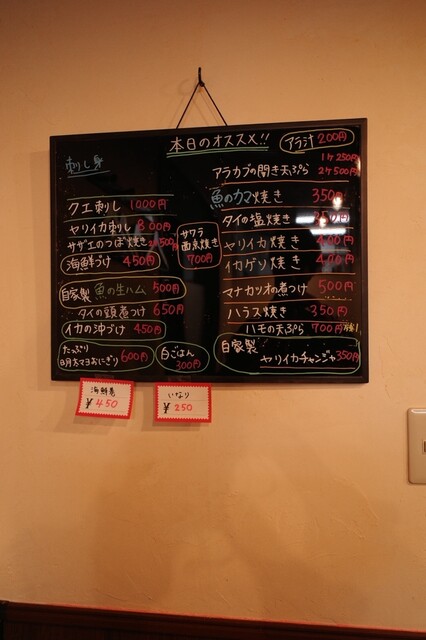 本日のオススメ!!
アラ汁 200円
刺し身
クエ刺し 1000円
ヤリイカ刺し 800円
サザエのつぼ焼き 500円
海鮮づけ 450円
自家製 魚の生ハム 500円
タイの頭煮つけ 650円
イカの沖づけ 450円
たっぷり
明太マヨおにぎり 600円
サワラ
西京焼き
700円
白ごはん
300円
1ケ250円
アラカブの開き天ぷら 2ケ500円
魚のカマ焼き 350円
タイの塩焼き
ヤリイカ焼き 400円
イカゲソ焼き 400円
マナカツオの煮つけ 500円
ハラス焼き 350円
ハモの天ぷら 700円
自家製
ヤリイカチャンジャ 350円
海鮮巻
¥450
いなり
¥250